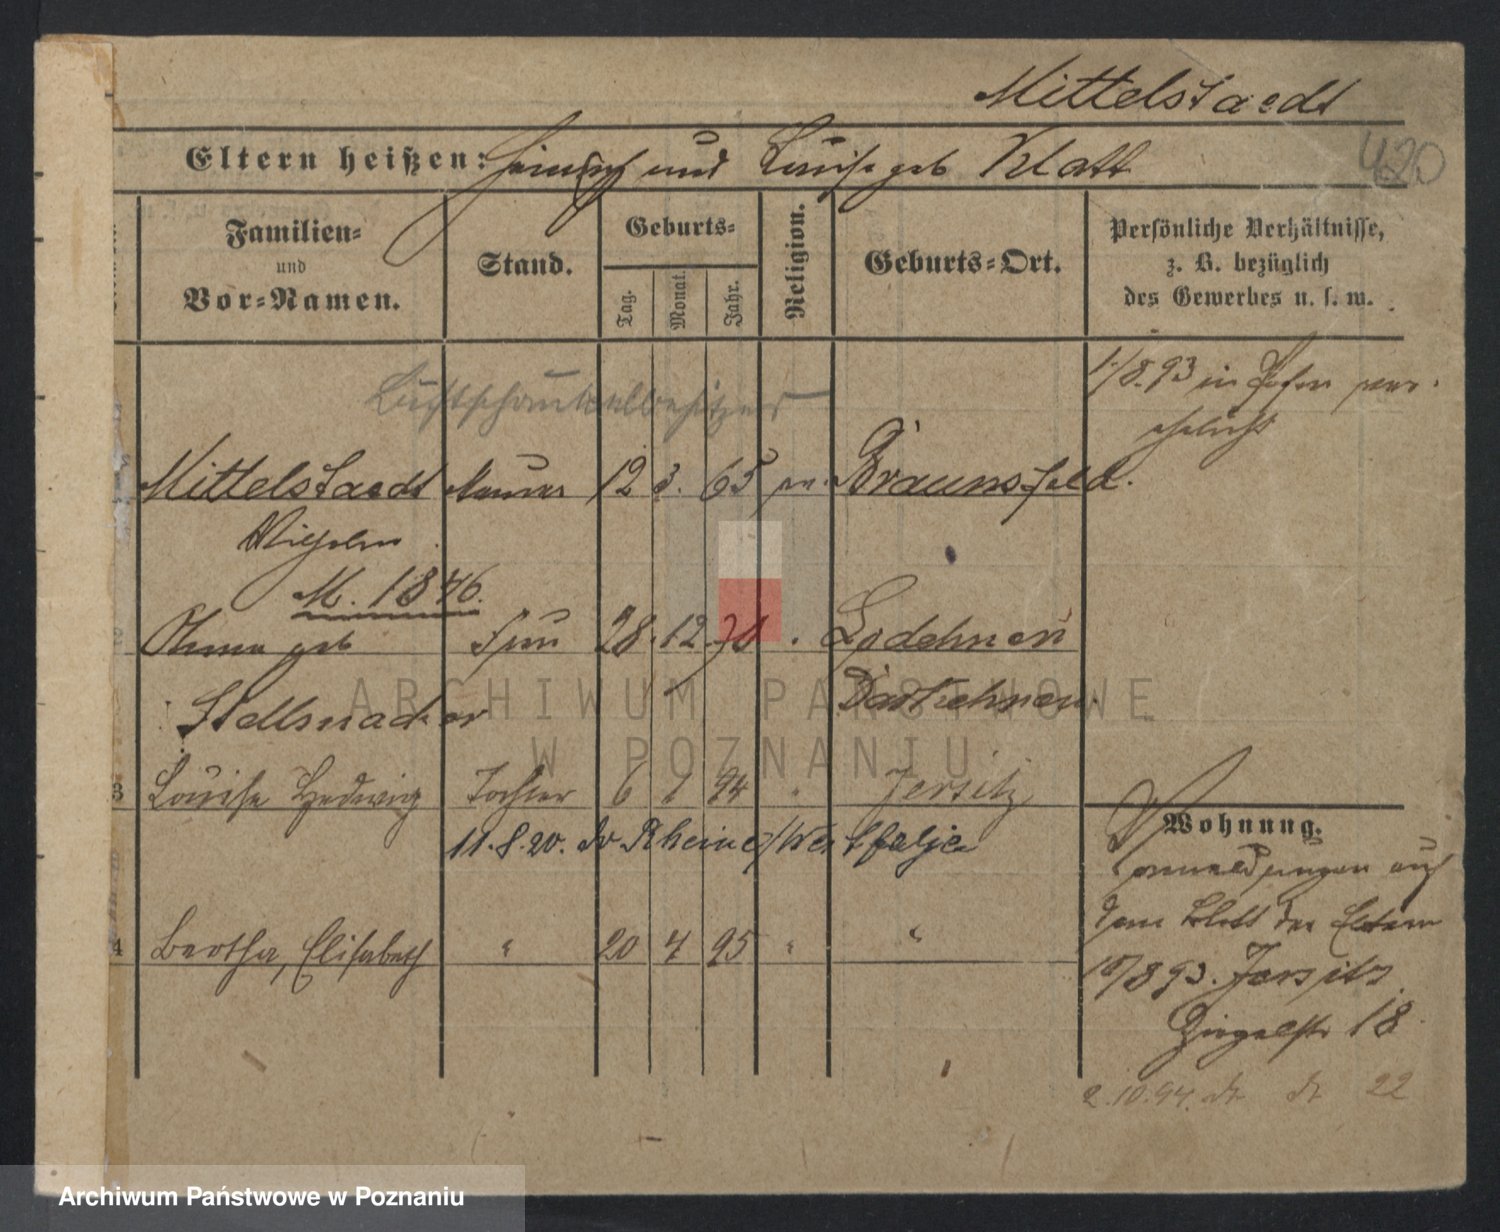 Mittelstaedt
420
Eltern heißen: Heinrich und Luise geb Klatt
Familien- und Vor-Namen.
Stand.
Geburts-
Tag.
Monat.
Jahr.
Religion.
Geburts-Ort.
Persönliche Verhältnisse,
z. B. bezüglich
des Gewerbes u. s. w.
1/8.93 in Posen ver-
ehelicht
Luftschaukelbesitzer
Mittelstaedt Maurer 12 3. 65 ev. Braunsfeld.
Wilhelm
M. 1876.
2 geb Frau 28. 12. 71 " Lodehnen
Stellmacher Darkehmen.
3 Louise Hedwig Tochter 6 1 94 " Jersitz
11.8.20. Rheine/Westfalen
4 Bertha, Elisabeth " 20 4 95 " "
Wohnung.
auf
dem Blatt der Eltern
10/8 93. Jersitz
Ziegelstr 18
2.10.94. dt dt 22
ARCHIWUM PAŃSTWOWE
W POZNANIU
Archiwum Państwowe w Poznaniu